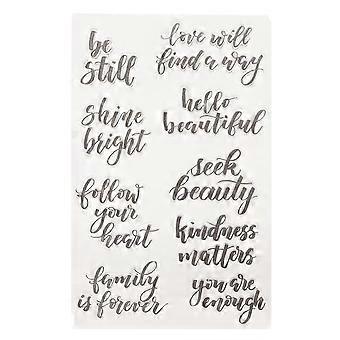 be
still
love will
find a way
shine
bright
hello
beautiful
seek
beauty
follow
your
heart
kindness
matters
family
is forever
you are
enough